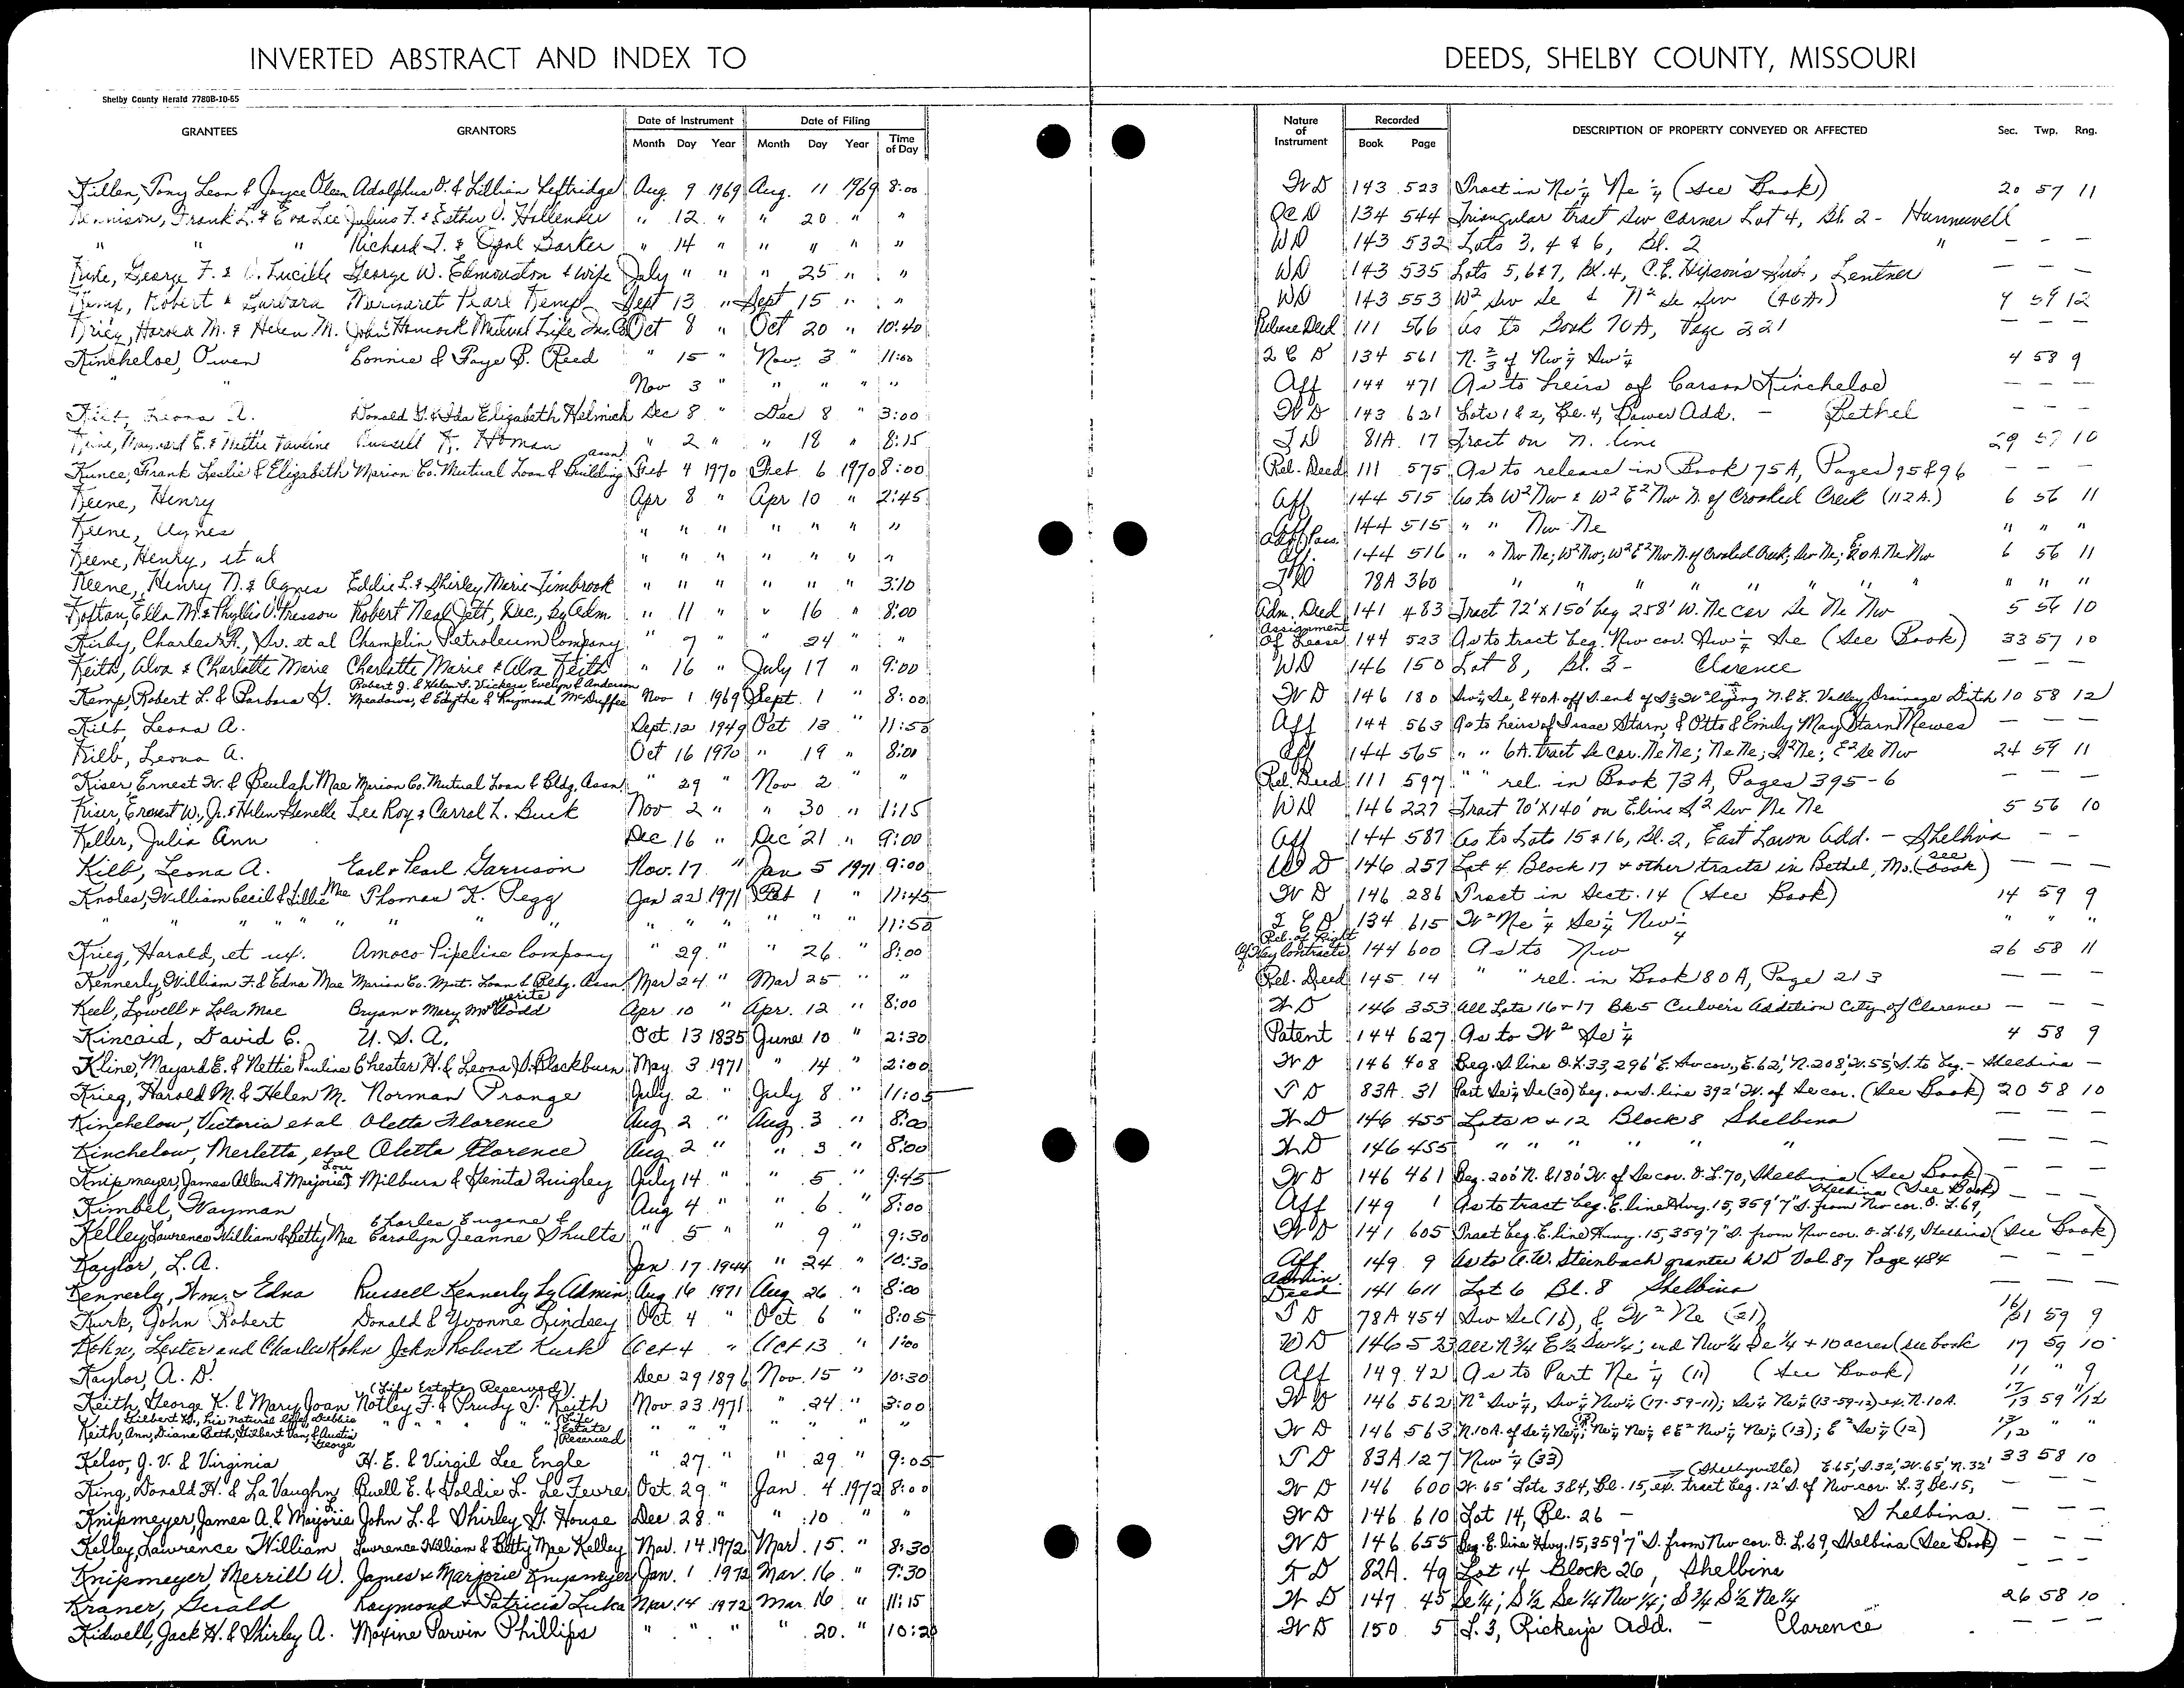 INVERTED ABSTRACT AND INDEX TO DEEDS, SHELBY COUNTY, MISSOURI
Shelby County Herald 7780B-10-65
GRANTEES GRANTORS Date of Instrument Date of Filing Nature of Instrument Recorded DESCRIPTION OF PROPERTY CONVEYED OR AFFECTED Sec. Twp. Rng.
Month Day Year Month Day Year Time of Day Book Page
Killen, Tony Leon & Joyce Oleen Adolphus O. & Lillian Leftridge Aug. 9 1969 Aug. 11 1969 8:00 W D 143 523 Tract in Ne¼ Ne¼ (See Book) 20 57 11
Kennison, Frank L. & Eva Lee Julius F. & Esther V. Hollender " 12 " " 20 " " QC D 134 544 Triangular tract Sw corner Lot 4, Bl. 2 - Hunnewell
" " " Richard T. & Opal Barker " 14 " " " " " WD 143 532 Lots 3, 4 & 6, Bl. 2 " — — —
George F. & Lucille George W. Edmonston & wife July " " " 25 " " WD 143 535 Lots 5, 6 & 7, Bl. 4, C.E. Hixson's Sub., Lentner — — —
Kemp, Robert & Barbara Margaret Pearl Kemp Sept 13 " Sept 15 " " WD 143 553 W² Sw Se & N² Se Sw (40A.) 4 59 12
Krieg, Harold M. & Helen M. John Hancock Mutual Life Ins. Co Oct 8 " Oct 20 " 10:40 Release Deed 111 566 As to Book 70A, Page 221 — — —
Kincheloe, Owen Connie & Faye B. Reed " 15 " Nov. 3 " 11:00 Q C D 134 561 N. ⅔ of Nw¼ Sw¼ 4 58 9
" " Nov 3 " " " " " Aff 144 471 As to heirs of Carson Kincheloe — — —
Kilb, Leona A. Donald G. & Ida Elizabeth Helmick Dec 8 " Dec 8 " 3:00 W D 143 621 Lots 1 & 2, Bl. 4, Bower Add. - Bethel — — —
Kline, Maynard E. & Nettie Pauline Russell K. Homan " 2 " " 18 " 8:15 T D 81A. 17 Tract on N. line 29 57 10
Kunce, Frank Leslie & Elizabeth Marion Co. Mutual Loan & Building Assn. Feb 4 1970 Feb 6 1970 8:00 Rel. Deed 111 575 As to release in Book 75A, Pages 95 & 96 — — —
Keene, Henry Apr 8 " Apr 10 " 2:45 Aff 144 515 As to W² Nw & W² E² Nw N. of Crooked Creek (112A.) 6 56 11
Keene, Agnes " " " " " " " Aff 144 515 " " Nw Ne " " "
Keene, Henry, et al " " " " " " " Aff. 144 516 " " Nw Ne; W² Nw; W² E² Nw N. of Crooked Creek; Sw Ne; E 20A. Ne Nw 6 56 11
Keene, Henry N. & Agnes Eddie L. & Shirley Marie Timbrook " " " " " " 3:10 T D 78A 360 " " " " " " " " " "
Koftan, Ella M. & Phyllis V. Presson Robert Neal Jett, Dec., by Adm. " 11 " " 16 " 8:00 Adm. Deed 141 483 Tract 72' x 150' beg 258' W. Ne cor Se Ne Nw 5 56 10
Kirby, Charles R., Sr. et al Champlin Petroleum Company " 7 " " 24 " " Assignment Of Lease 144 523 As to tract beg. Nw cor. Sw¼ Se (See Book) 33 57 10
Keith, Alva & Charlotte Marie Charlotte Marie & Alva Keith " 16 " July 17 " 9:00 WD 146 150 Lot 8, Bl. 3 - Clarence — — —
Kemp, Robert L. & Barbara G. Robert J. & Helen S. Vickers, Evelyn & Anderson Meadows, & Edythe & Raymond McDuffee Nov 1 1969 Sept. 1 " 8:00 W D 146 180 Sw¼ Se, & 40A off S. end of S½ W² lying N. & E. Valley Drainage Ditch 10 58 12
Kilb, Leona A. Sept. 12 1949 Oct 13 " 11:50 Aff 144 563 As to heirs of Isaac Starn, & Otto & Emily May Starn Mewes — — —
Kilb, Leona A. Oct 16 1970 " 19 " 8:00 Aff 144 565 " " 6A. tract Se cor. Ne Ne; Ne Ne; S² Ne; E² Se Nw 24 59 11
Kiser, Ernest W. & Beulah Mae Marion Co. Mutual Loan & Bldg. Assn. " 29 " Nov 2 " " Rel. Deed 111 597 " " rel. in Book 73A, Pages 395-6 — — —
Kiser, Ernest W., Jr. & Helen Genelle Lee Roy & Carrol L. Buck Nov 2 " " 30 " 1:15 WD 146 227 Tract 70' x 140' on E. line S² Sw Ne Ne 5 56 10
Keller, Julia Ann Dec 16 " Dec 21 " 9:00 Aff 144 587 As to Lots 15 & 16, Bl. 2, East Lawn Add. - Shelbina — —
Kilb, Leona A. Earl & Pearl Garrison Nov. 17 " Jan 5 1971 9:00 W D 146 257 Lot 4 Block 17 & other tracts in Bethel, Mo. (see book) — — —
Knoles, William Cecil & Lillie Mae Thomas K. Pegg Jan 22 1971 Feb 1 " 11:45 W D 146 286 Tract in Sect. 14 (See Book) 14 59 9
" " " " " " " " " " " " 11:50 Q C D 134 615 W² Ne¼ Se¼ Nw¼ " " "
Krieg, Harold, et ux. Amoco Pipeline Company " 29. " " 26. " 8:00 Rel. of Right Of Way Contracts 144 600 As to Nw 26 58 11
Kennerly, William F. & Edna Mae Marion Co. Mut. Loan & Bldg. Assn Mar 24 " Mar 25 " " Rel. Deed 145 14 " " rel. in Book 80A, Page 213 — — —
Keel, Lowell & Lola Mae Bryan & Mary Todd Apr 10 " Apr. 12 " 8:00 W D 146 353 All Lots 16 & 17 Bk 5 Culvers Addition City of Clarence — — —
Kincaid, David C. U. S. A. Oct 13 1835 June 10 " 2:30 Patent 144 627 As to W² Se¼ 4 58 9
Kline, Mayard E. & Nettie Pauline Chester H. & Leona D. Blackburn May 3 1971 " 14 " 2:00 W D 146 408 Beg. S line O.L. 33, 296' E. Sw cor., E. 62', N. 208', W. 55', S. to beg. - Shelbina —
Krieg, Harold M. & Helen M. Norman Prange July 2 " July 8 " 11:05 T D 83A. 31 Part Se¼ Se (20) beg. on S. line 392' W. of Se cor. (See Book) 20 58 10
Kinchelow, Victoria et al Oletta Florence Aug. 2 " Aug. 3 " 8:00 W D 146 455 Lots 10 & 12 Block 8 Shelbina — — —
Kinchelow, Merletta, etal Oletta Florence Aug 2 " " 3 " 8:00 W D 146 455 " " " " " " — — —
Knipmeyer, James Allen & Marjorie Lou Milburn & Henita Quigley July 14 " " 5 " 9:45 W D 146 461 Beg. 200' N. & 180' W. of Se cor. O.L. 70, Shelbina (See Book) — — —
Kimbel, Wayman Aug 4 " " 6 " 8:00 Aff 149 1 As to tract beg. E. line Hwy. 15, 359'7" S. from Nw cor. O. L. 69, Shelbina (See Book) — — —
Kelley, Lawrence William & Betty Mae Charles Eugene & Carolyn Jeanne Shults " 5 " 9 " 9:30 W D 141 605 Tract beg. E. line Hwy. 15, 359'7" S. from Nw cor. O. L. 69, Shelbina (See Book)
Kaylor, L. A. Jan 17 1944 " 24 " 10:30 Aff 149 9 As to A. W. Steinbach grantee WD Vol. 87 Page 484 — — —
Kennerly, Wm. & Edna Russell Kennerly by Admin Aug 16 1971 Aug 26 " 8:00 Admin. Deed 141 611 Lot 6 Bl. 8 Shelbina — — —
Kurk, John Robert Donald & Yvonne Lindsey Oct. 4 " Oct 6 " 8:05 T D 78A 454 Sw Se (16), & W² Ne (21) 16/21 59 9
Kohn, Lester and Charles Kohn John Robert Kurk Oct 4 " Oct 13 " 1:00 WD 146 523 all N¾ E½ Sw¼; and Nw¼ Se¼ + 10 acres (see book 17 59 10
Kaylor, A. D. Dec 29 1896 Nov. 15 " 10:30 Aff 149 42 As to Part Ne¼ (11) (See Book) 11 " 9
Keith, George K. & Mary Joan Notley F. & Prudy J. Keith (Life Estate Reserved) Nov. 23 1971 " 24 " 3:00 W D 146 562 N² Sw¼, Sw¼ Nw¼ (17-59-11); Se¼ Ne¼ (13-59-12) ex. N. 10A. 17/13 59 11/12
Keith, Ann, Diane Beth, Gilbert Van, & Austin George " " " " Life Estate Reserved " " " " " " W D 146 563 N. 10A. of Se¼ Ne¼; Ne¼ Ne¼ & E² Nw¼ Ne¼ (13); E² Se¼ (12) 13/12 " "
Kelso, J. V. & Virginia H. E. & Virgil Lee Engle " 27. " " 29. " 9:05 T D 83A. 127 Nw¼ (33) 33 58 10
King, Donald H. & La Vaughn Ruell E. & Goldie L. Le Fevre Oct. 29 " Jan. 4 1972 8:00 W D 146 600 W. 65' Lots 3 & 4, Bl. 15, ex. tract beg. 12' S. of Nw cor. L. 3, Bl. 15, (Shelbyville) E. 65', S. 32', W. 65', N. 32' — — —
Knipmeyer, James A. & Marjorie L. John L. & Shirley G. House Dec. 28 " " 10 " " W D 146 610 Lot 14, Bl. 26 - Shelbina. — — —
Kelley, Lawrence William Lawrence William & Betty Mae Kelley Mar. 14 1972 Mar. 15. " 8:30 W D 146 655 Beg. E. line Hwy. 15, 359'7" S. from Nw cor. O. L. 69, Shelbina (See Book) — — —
Knipmeyer, Merrill W. James & Marjorie Knipmeyer Jan. 1 1972 Mar. 16 " 9:30 T D 82A. 49 Lot 14, Block 26, Shelbina — — —
Kraner, Gerald Raymond & Patricia Luka Mar. 14 1972 Mar. 16 " 11:15 W D 147 45 Se¼; S½ Se¼ Nw¼; S¾ S½ Ne¼ 26 58 10
Kidwell, Jack H. & Shirley A. Maxine Parvin Phillips " " " " 20. " 10:20 W D 150 5 L. 3, Rickey's Add. - Clarence — — —